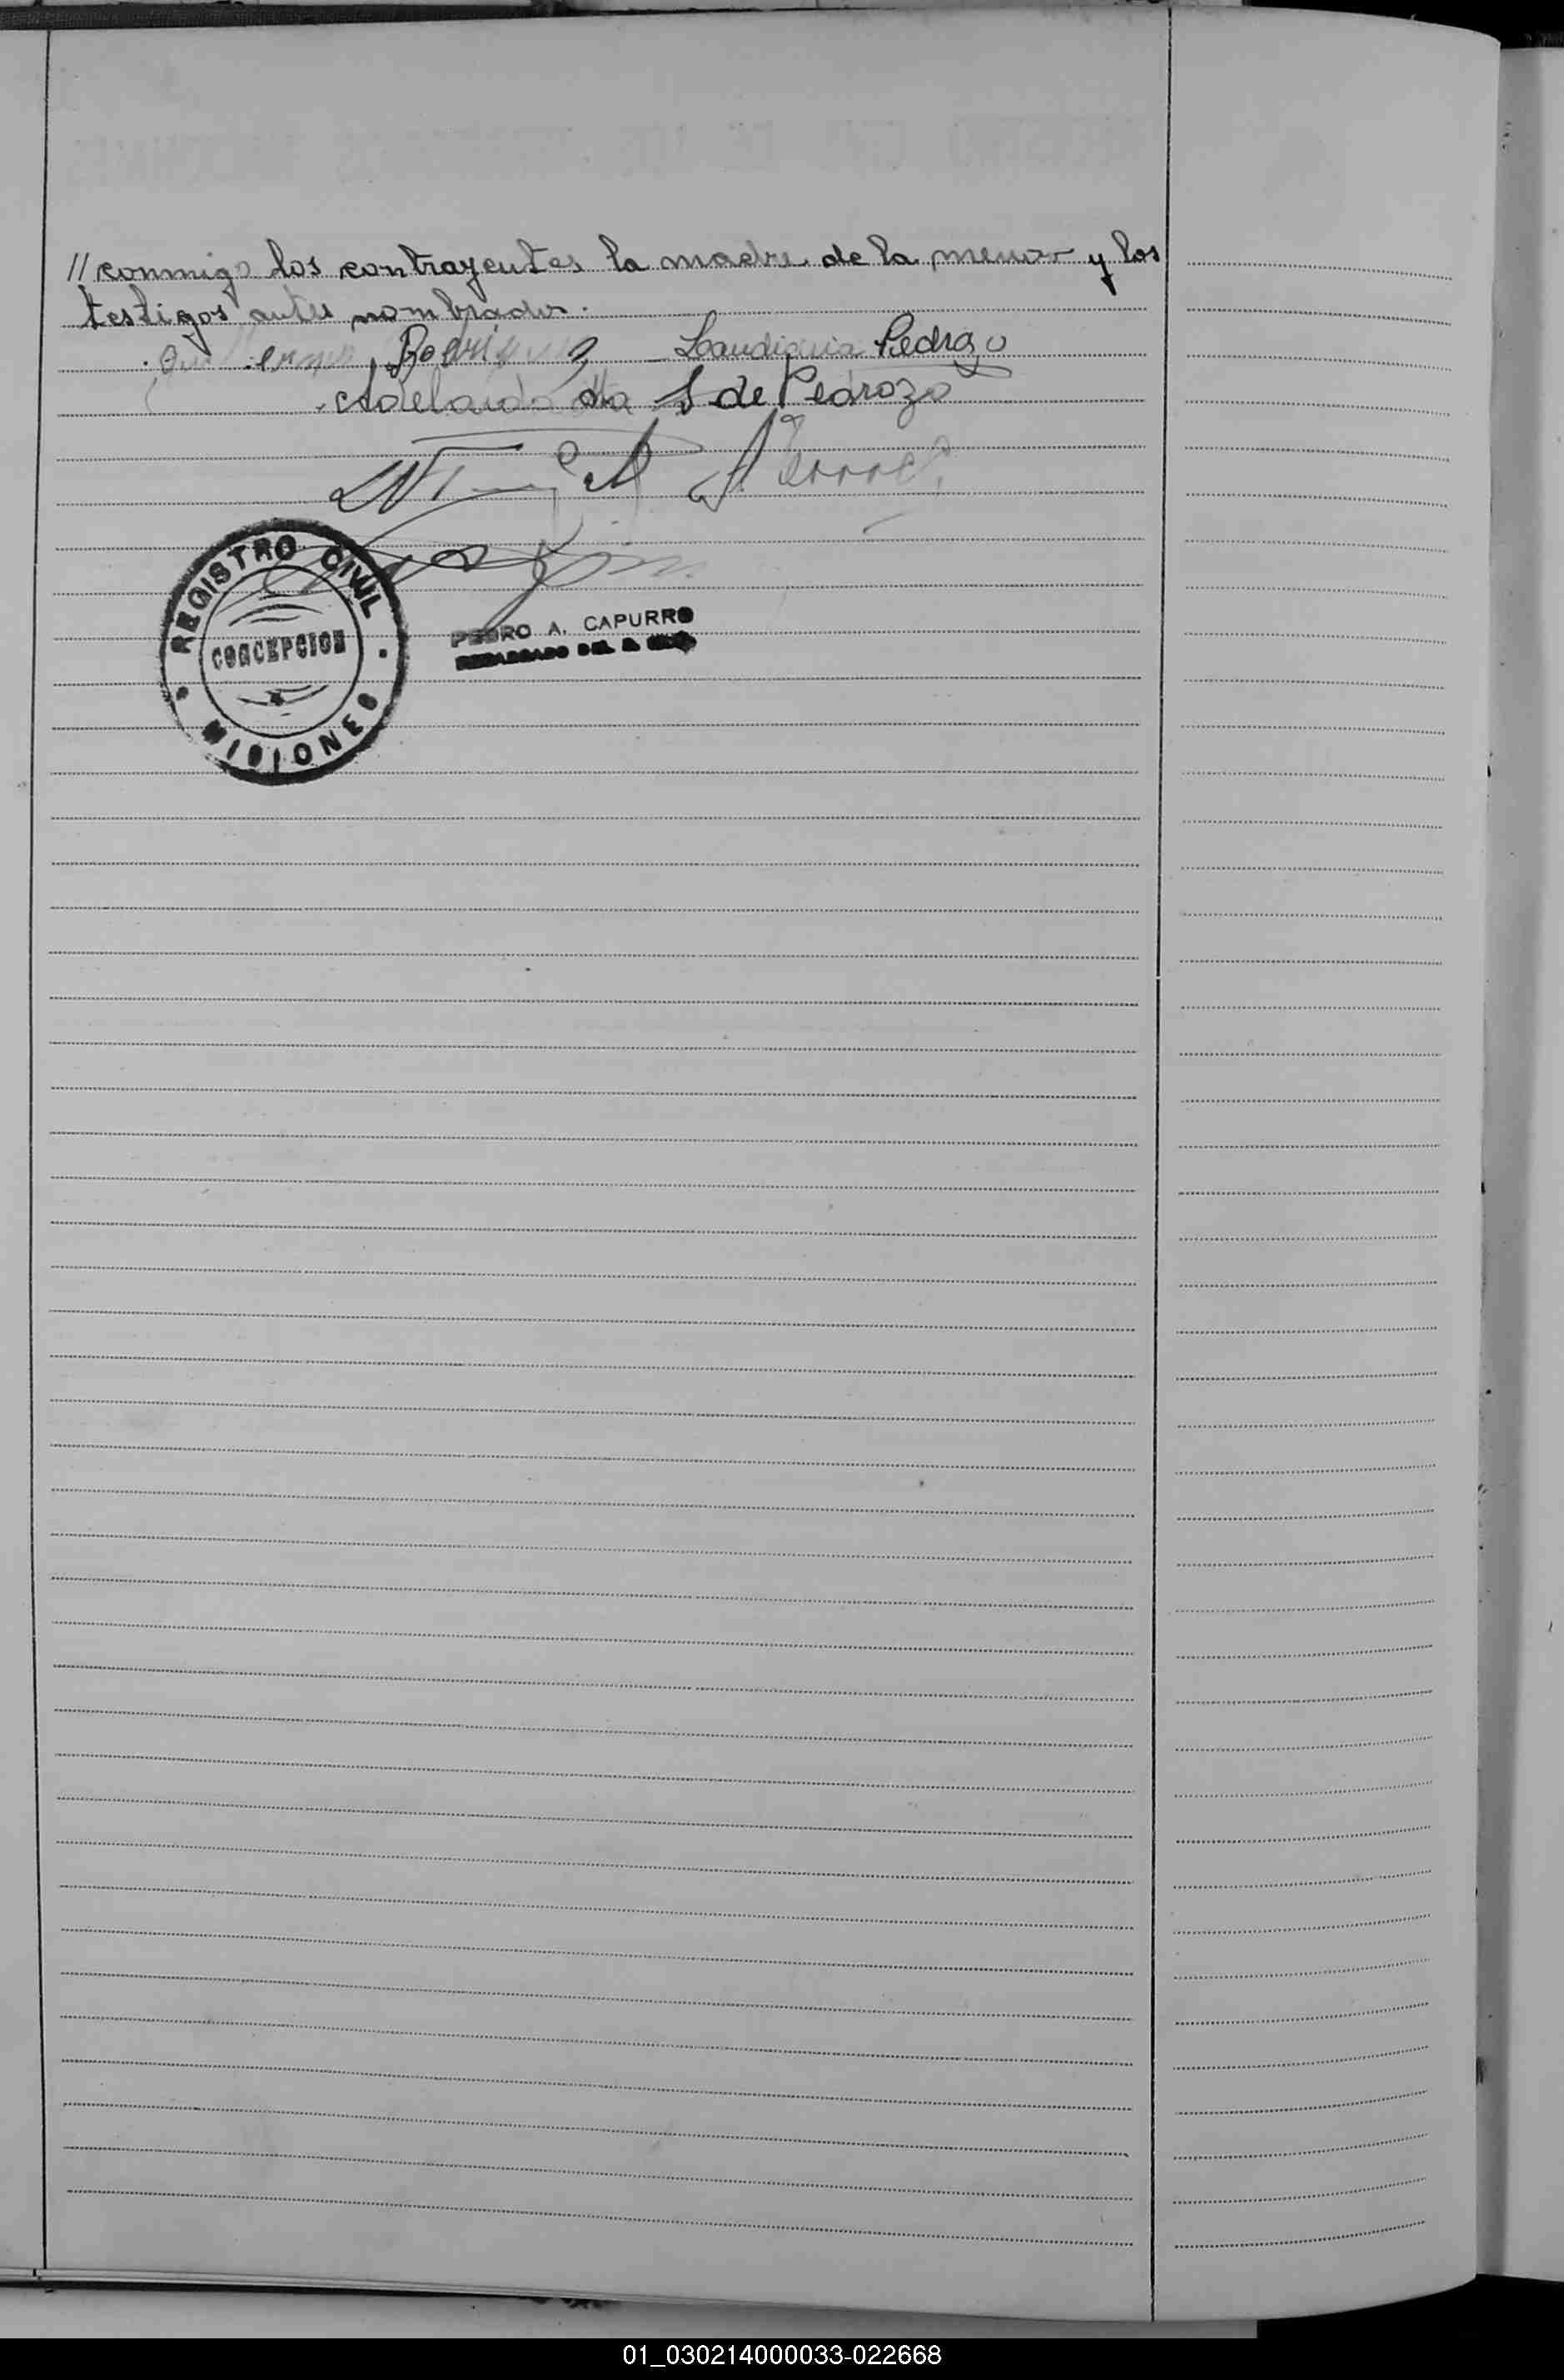 // conmigo los contrayentes la madre de la menor y los
testigos antes nombrados.
Rodriguez Laudiquia Pedrozo
Adelaida S de Pedrozo
REGISTRO CIVIL
CONCEPCION
MISIONES
PEDRO A. CAPURRO
ENCARGADO DEL R. CIVIL
01_030214000033-022668